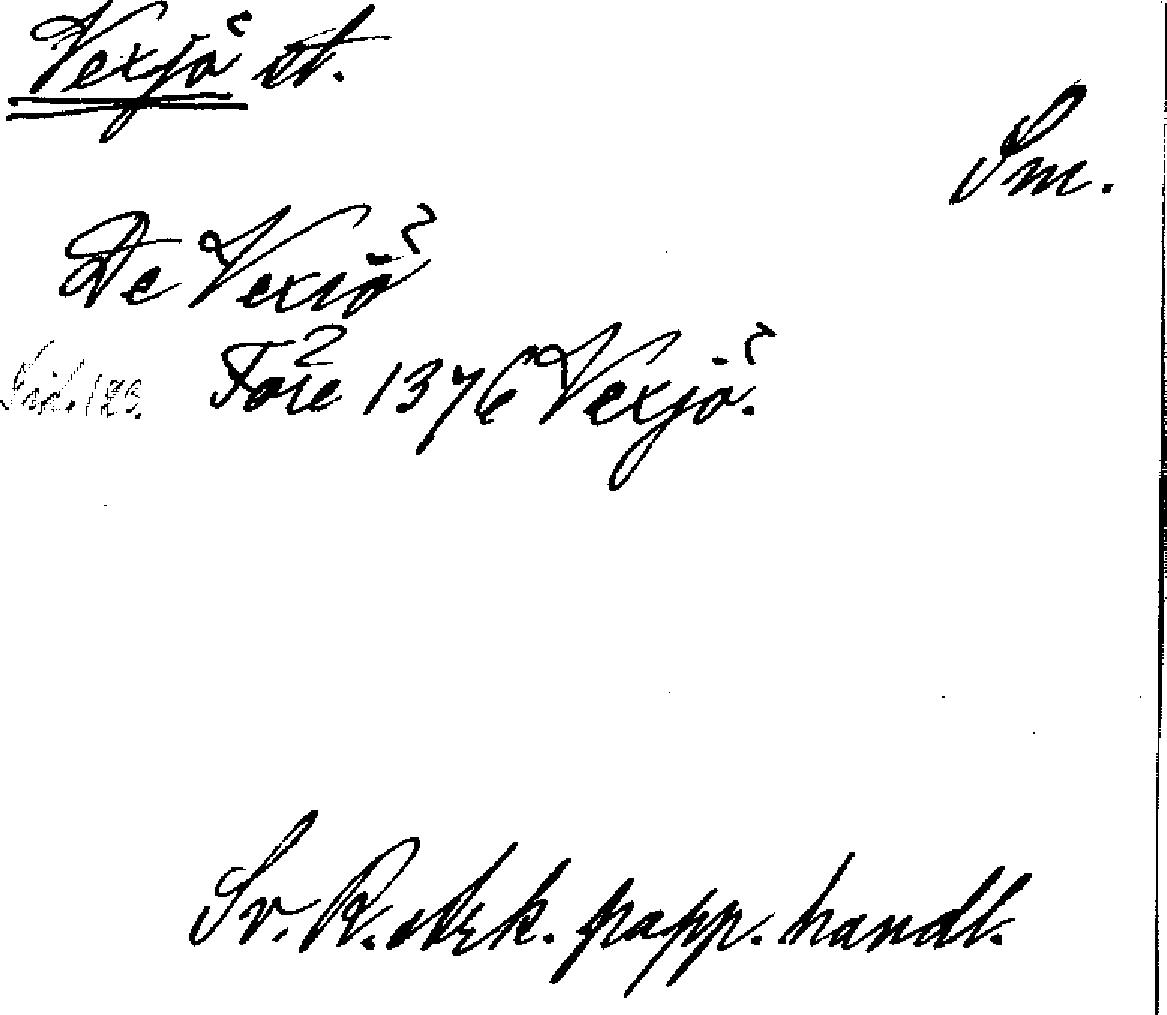 Vexjö st.
Sm.
De Vexiö
Före 1376 Vexjö.
Sv. R. ark. papp. handl.